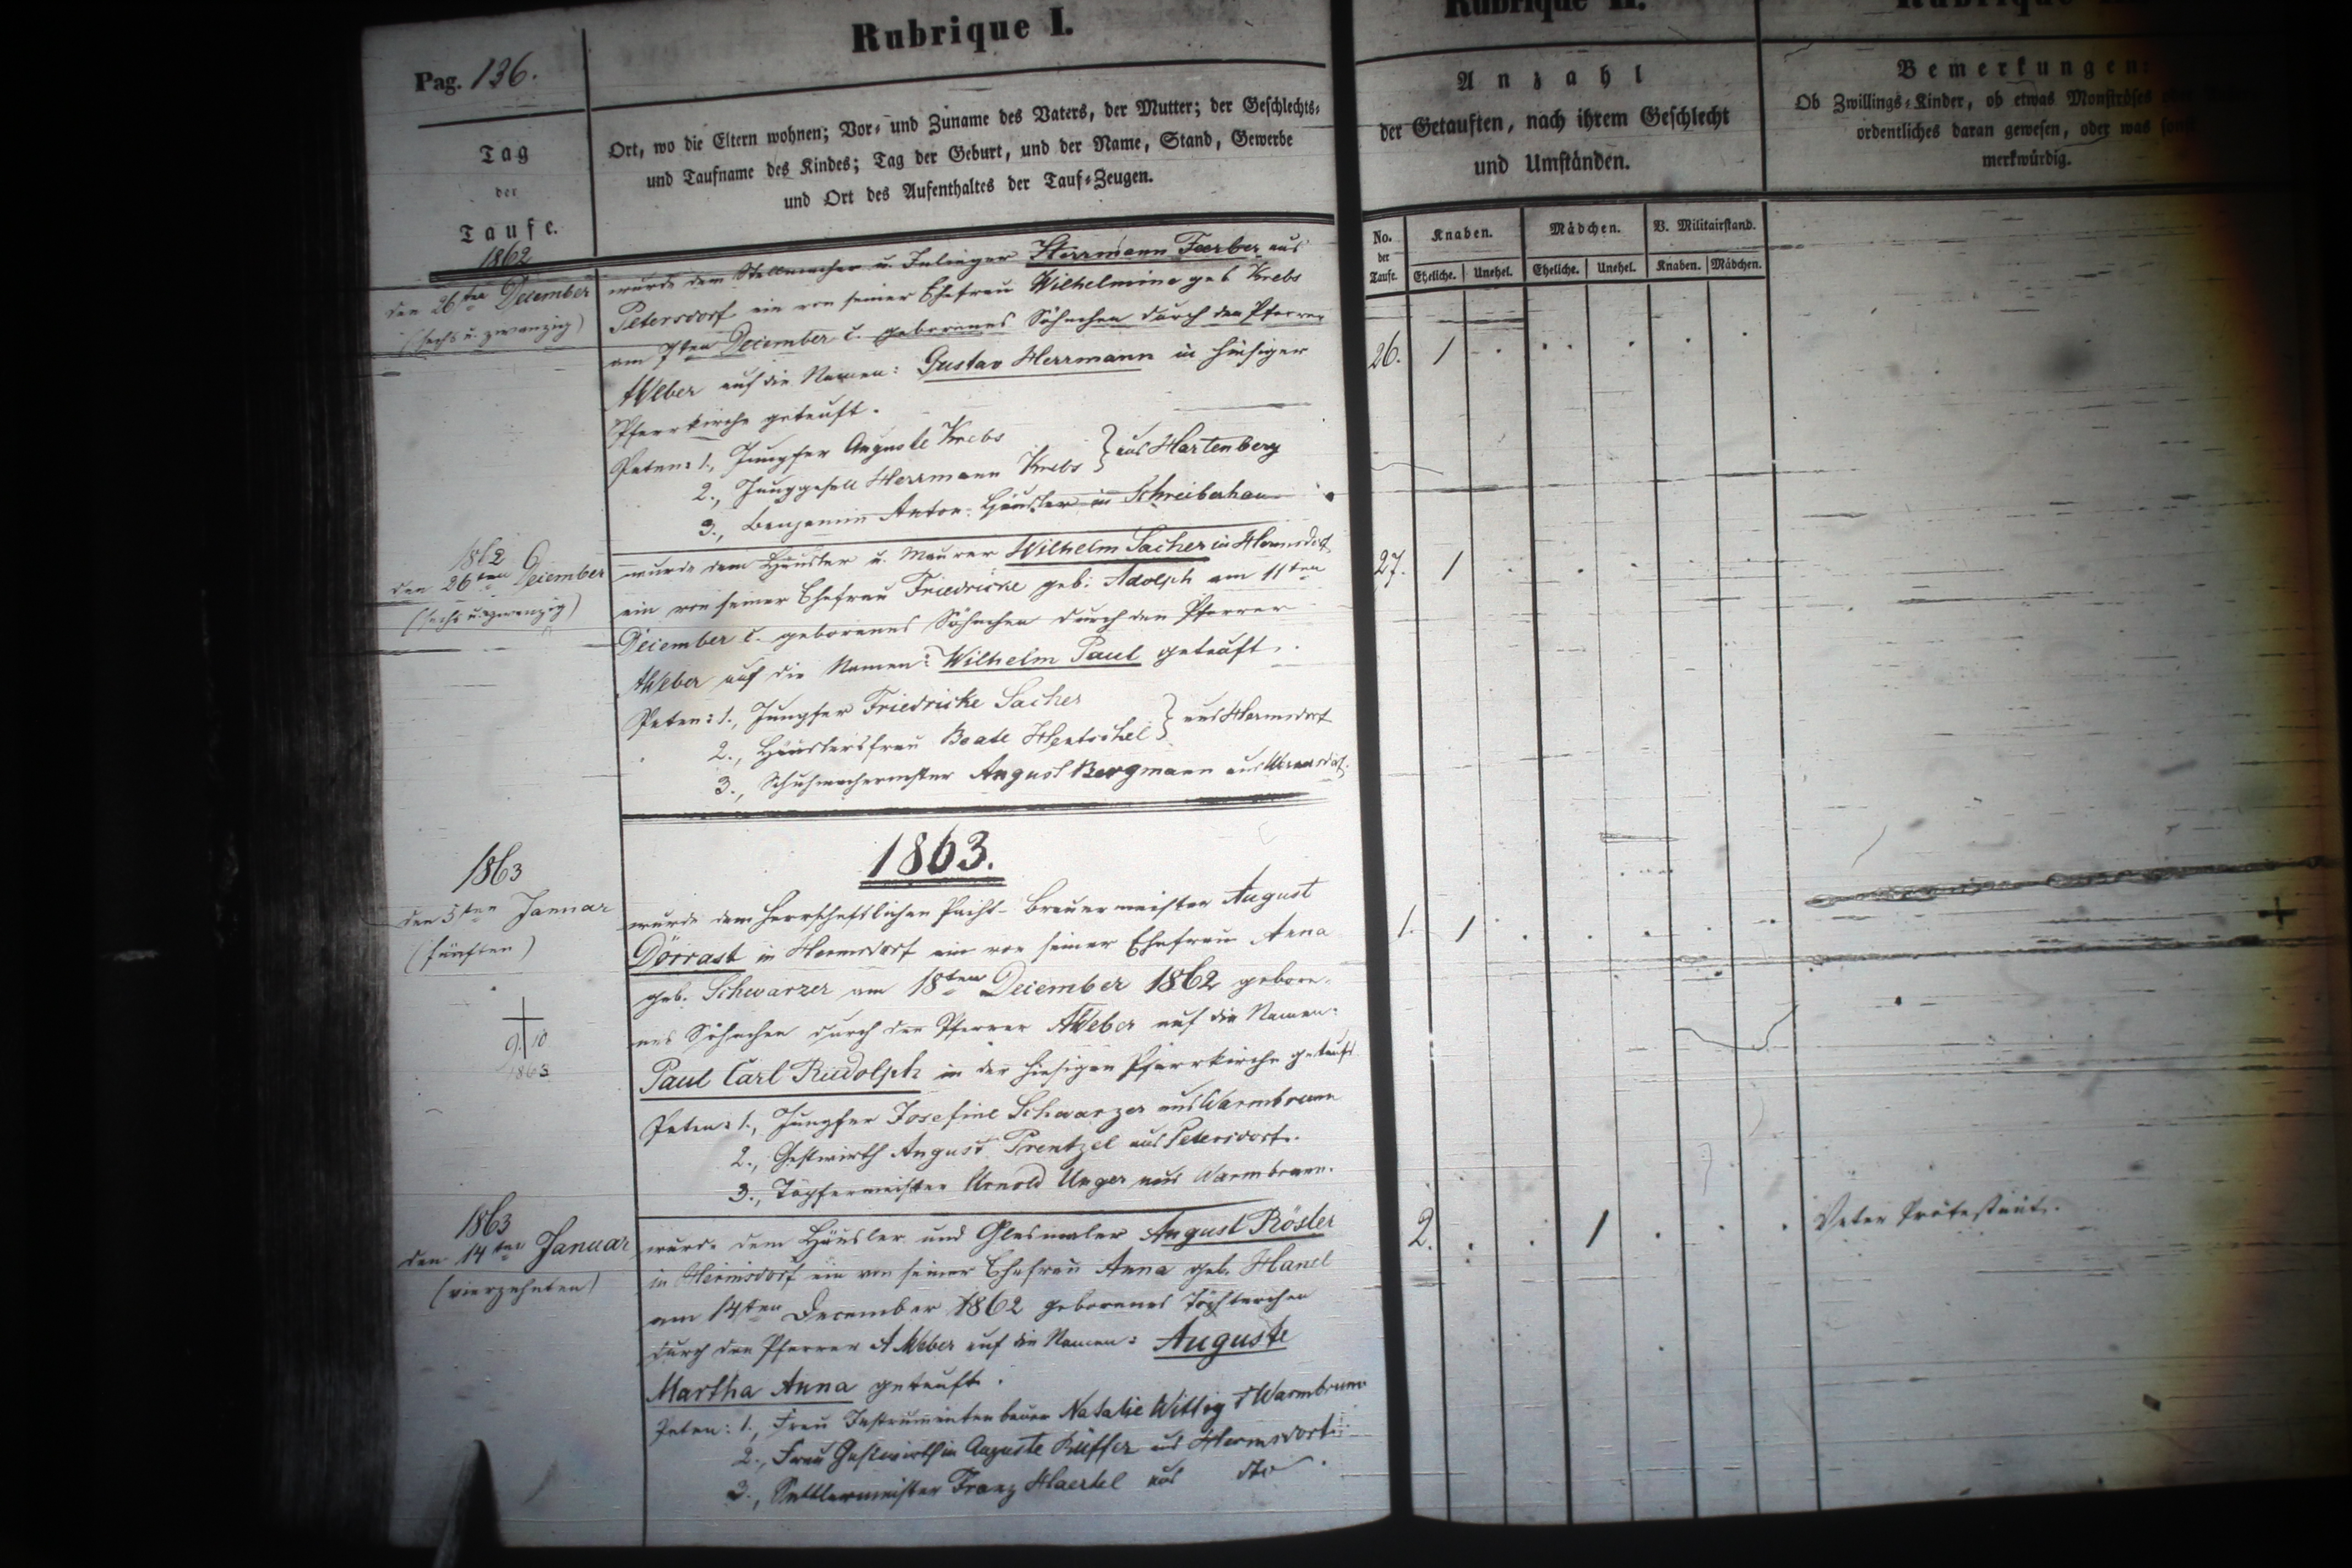 Pag. 136.
Rubrique I.
Rubrique II.
Tag
der
Taufe.
Ort, wo die Eltern wohnen; Vor- und Zuname des Vaters, der Mutter; der Geschlechts-
und Taufname des Kindes; Tag der Geburt, und der Name, Stand, Gewerbe
und Ort des Aufenthaltes der Tauf-Zeugen.
Anzahl
der Getauften, nach ihrem Geschlecht
und Umständen.
Bemerkungen:
Ob Zwillings-Kinder, ob etwas Monströses
ordentliches daran gewesen, oder was sonst
merkwürdig.
No. der Taufe.
Knaben. Mädchen. V. Militairstand.
Eheliche. Unehel. Eheliche. Unehel. Knaben. Mädchen.
1862
den 26ten December
(sechs u. zwanzig)
wurde dem Stellmacher u. Inlieger Herrmann Faerber aus
Petersdorf ein von seiner Ehefrau Wilhelmine geb Krebs
am 7ten December c. geborenes Söhnchen durch den Pfarrer
A Weber auf die Namen: Gustav Herrmann in hiesiger
Pfarrkirche getauft.
Paten: 1., Jungfer Auguste Krebs
2., Junggesell Herrmann Krebs } aus Hartenberg
3., Benjamin Anton Häusler in Schreiberhau
26. 1 . . . . . .
1862
den 26ten December
(sechs u. zwanzig)
wurde dem Häusler u. Maurer Wilhelm Sacher in Hermsdorf
ein von seiner Ehefrau Friedricke geb: Adolph am 11ten
December c. geborenes Söhnchen durch den Pfarrer
A Weber auf die Namen: Wilhelm Paul getauft.
Paten: 1., Jungfer Friedricke Sacher
2., Häuslersfrau Beate Hentschel } aus Hermsdorf
3., Schuhmachermster August Bergmann aus
27. 1 . . . . .
1863.
1863
den 5ten Januar
(fünften)
9. 10
1863
wurde dem herrschaftlichen Pacht-Brauermeister August
Dörrast in Hermsdorf ein von seiner Ehefrau Anna
geb. Schwarzer am 18ten December 1862 gebore-
nes Söhnchen durch den Pfarrer A Weber auf die Namen:
Paul Carl Rudolph in der hiesigen Pfarrkirche getauft
Paten: 1., Jungfer Josefine Schwarzer aus Warmbrunn
2., Gastwirth August Prentzel aus Petersdorf.
3., Töpfermeister Arnold Unger aus Warmbrunn.
1. 1 . . . . .
1863
den 14ten Januar
(vierzehnten)
wurde dem Häusler und Glasmaler August Rösler
in Hermsdorf ein von seiner Ehefrau Anna geb. Hanel
am 14ten December 1862 geborenes Töchterchen
durch den Pfarrer A Weber auf die Namen: Auguste
Martha Anna getauft.
Paten: 1., Frau Instrumentenbauer Natalie Wittig Warmbrunn
2., Frau Gastwirthin Auguste Rüffer aus Hermsdorf
3., Sattlermeister Franz Haertel aus dto
2. . . 1 . . .
Vater Protestant.